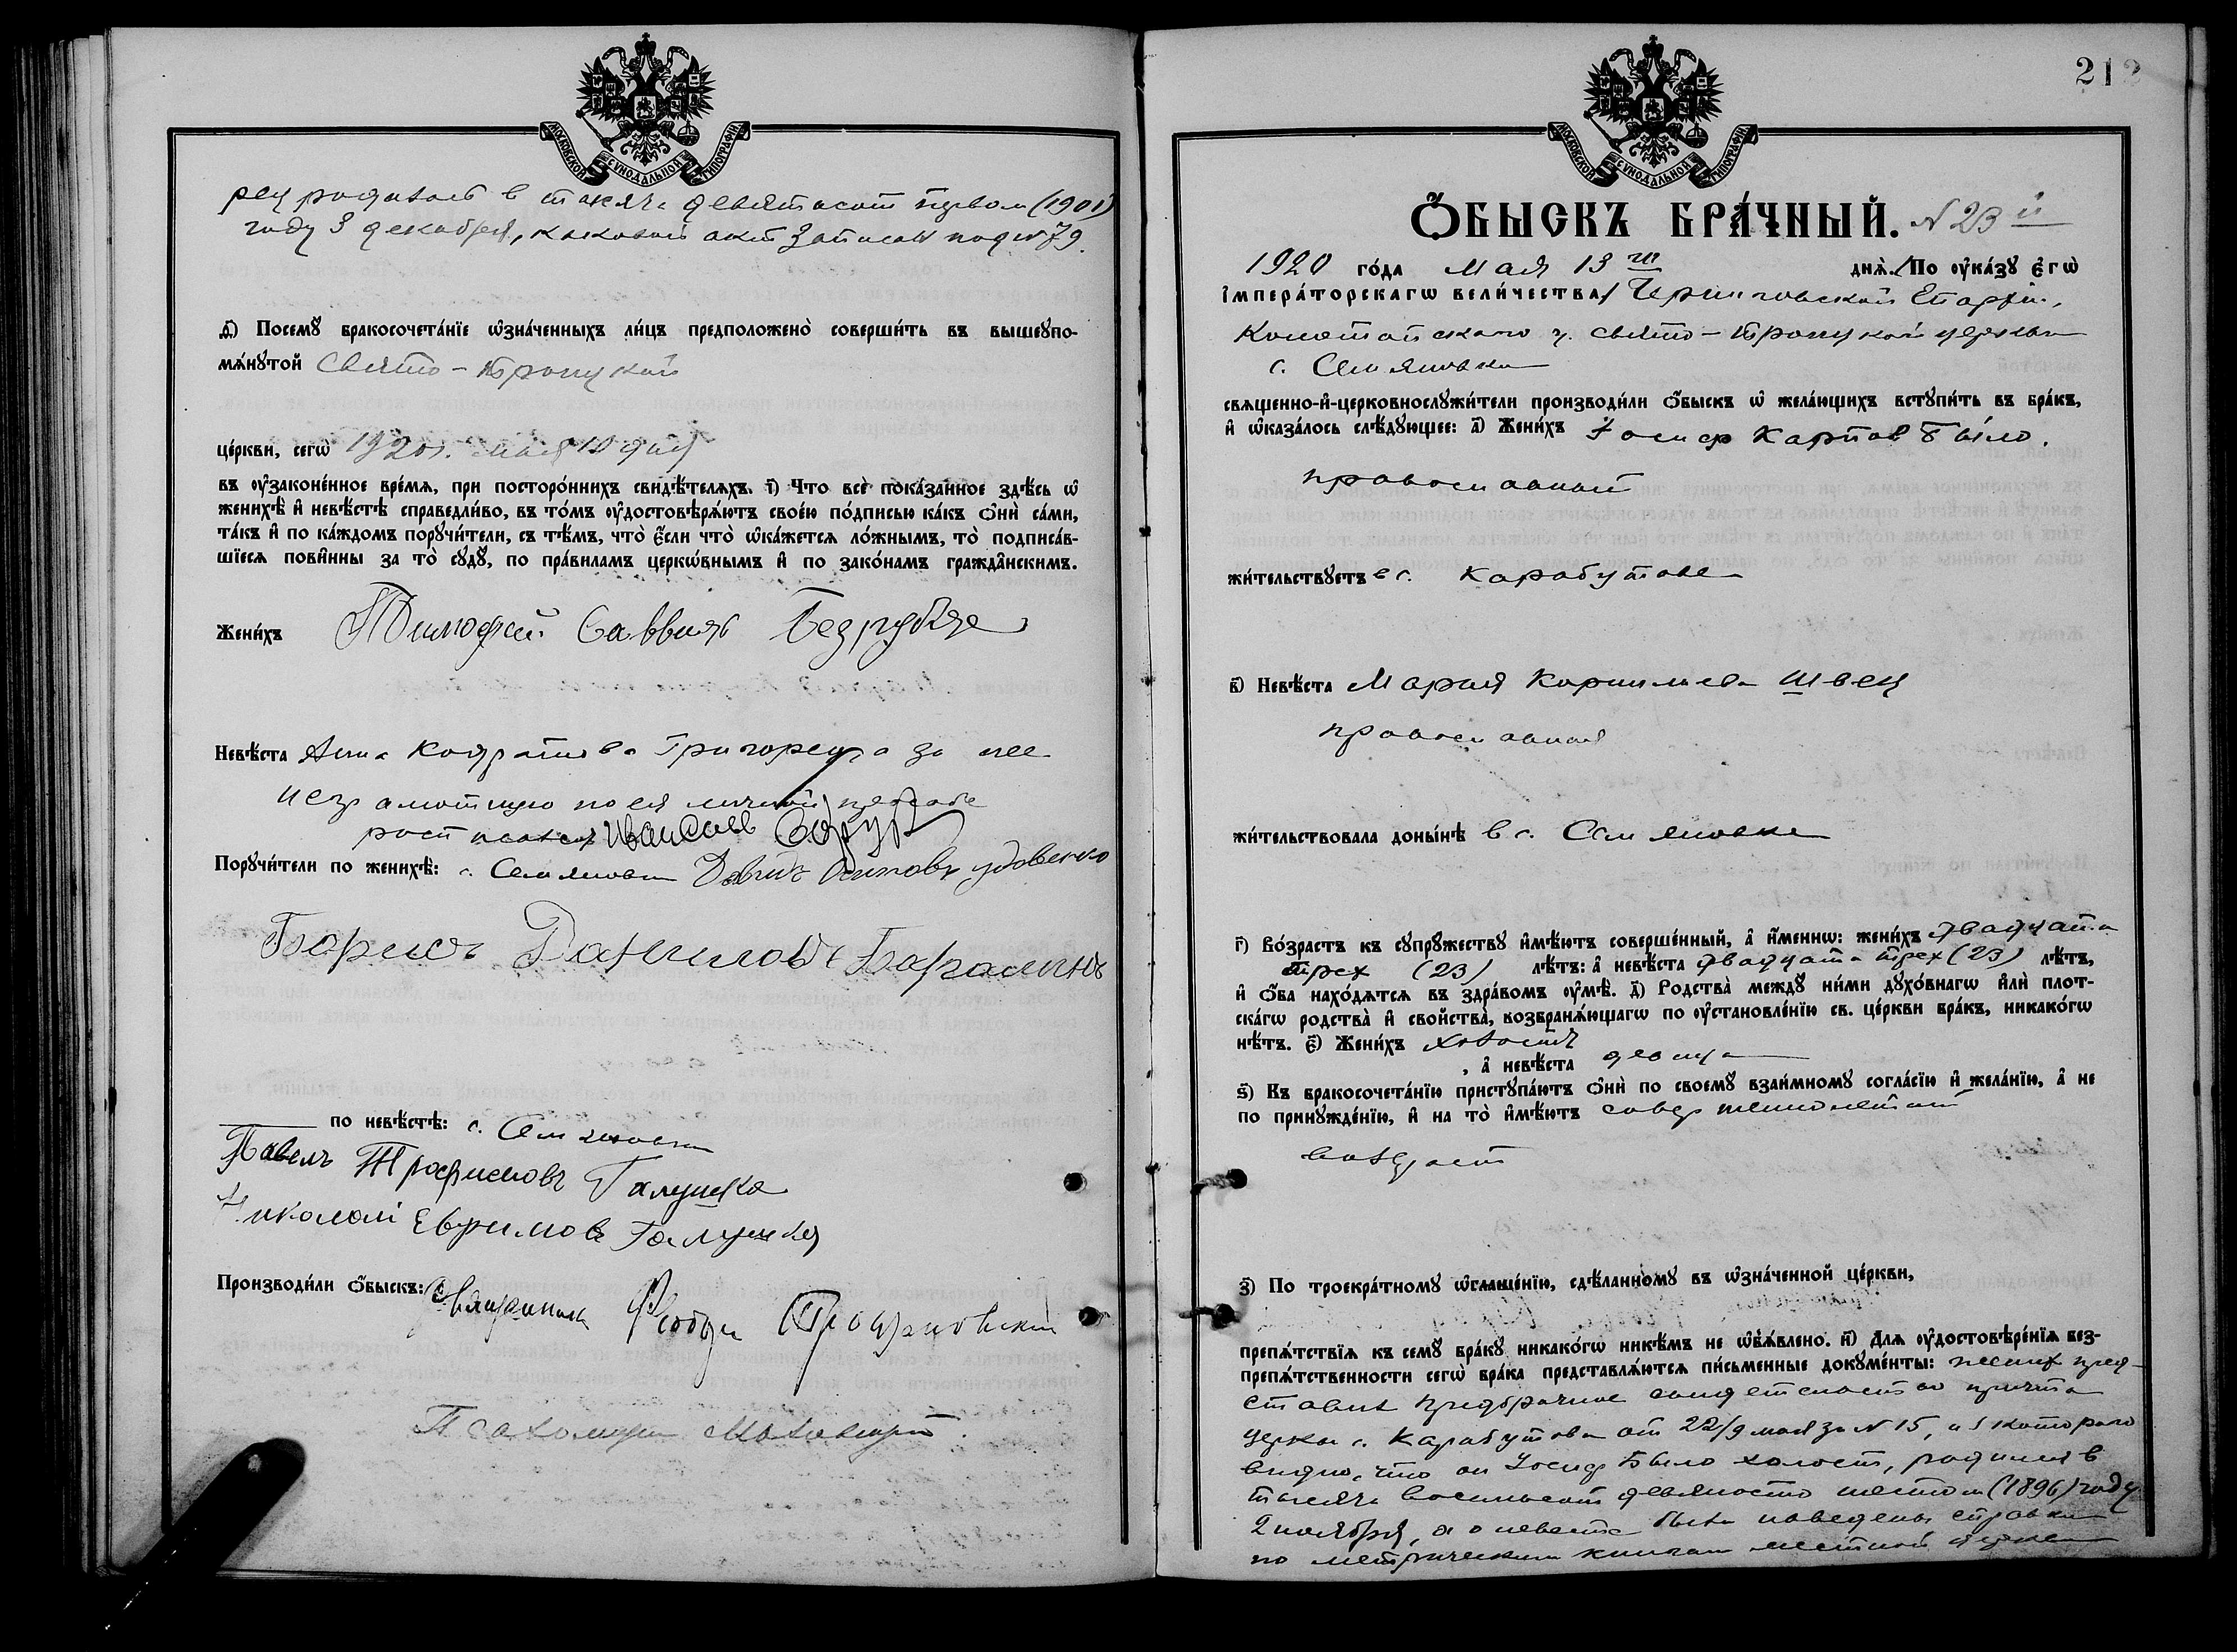 МОСКОВСКОЙ СѴНОДАЛЬНОЙ ТИПОГРАФІИ
рец родилась в тысяча девятьсот первом (1901)
году 3 декабря, каковой акт записан под № 79.
д҃) Посемꙋ̀ бракосочета́нїе ѡ҆зна́ченныхъ ли́цъ предположено̀ соверши́ть въ вышеꙋпо-
мѧ́нꙋтой Свято-Троицкой
це́ркви, сегѡ̀ 1920 г. мая 10 дня
въ ᲂу҆законе́нное вре́мѧ, при посторо́ннихъ свидѣ́телѧхъ. і҃) Что всѐ пока́занное здѣ́сь ѡ҆
женихѣ̀ и҆ невѣ́стѣ справедли́во, въ то́мъ ᲂу҆достовѣрѧ́ютъ свое́ю по́дписью ка́къ ѻ҆нѝ са́ми,
та́къ и҆ по ка́ждомъ порꙋчи́тели, съ тѣ́мъ, что̀ є҆́сли что̀ ѡ҆ка́жетсѧ ло́жнымъ, то̀ подписа́в-
шїесѧ пови́нны за то̀ сꙋдꙋ̀, по пра́вилам̾ церкѡ́внымъ и҆ по зако́намъ гражда̂нскимъ.
Жени́хъ Тимофей Саввин Безгубяе
Невѣ́ста Анна Кондратова Григорец а за нее
неграмотную по ея личной просьбе
росписался Иван Савв
Порꙋчи́тели по женихѣ̀: с. Семяновки Давид Осиповъ Удовенко
Борисъ Даниловъ
по невѣ́стѣ: с. Семяновки
Павелъ Трофимовъ Галушка
Николай Ефимов Галушка
Производи́ли ѻ҆́быскъ: Священник
Псаломщик
212
МОСКОВСКОЙ СѴНОДАЛЬНОЙ ТИПОГРАФІИ
Ѻ҆́БЫСКЪ БРА́ЧНЫЙ. № 23й
1920 го́да мая 13го днѧ̀. /По ᲂу҆ка́зꙋ є҆гѡ̀
і҆мпера́торскагѡ вели́чества,/ Черниговской Епархии,
Конотопского у. Свято-Троицкой церкви
с. Семяновки
свѧщенно-и҆-церковнослꙋжи́тели производи́ли ѻ҆́быскъ ѡ҆ жела́ющихъ встꙋпи́ть въ бра́къ,
и҆ ѡ҆каза́лось слѣ́дꙋющее: а҃) Жени́хъ Иосиф Карпов Было.
православный
жи́тельствꙋетъ в с. Карабутове
в҃) Невѣ́ста Мария Корнилиева Швец
православная
жи́тельствовала доны́нѣ в с. Семяновке
г҃) Во́зрастъ къ сꙋпрꙋ́жествꙋ и҆мѣ́ютъ соверше́нный, а҆ и҆́меннѡ: жени́хъ двадцати
трех (23) лѣ́тъ: а҆ невѣ́ста двадцати трех (23) лѣ́тъ,
и҆ ѻ҆́ба нахо́дѧтсѧ въ здра́вомъ ᲂу҆мѣ̀. д҃) Родства̀ междꙋ̀ ни́ми дꙋхо́внагѡ и҆лѝ плот-
ска́гѡ родства̀ и҆ свойства̀, возбранѧ́ющагѡ по ᲂу҆становле́нїю св. це́ркви бра́къ, никако́гѡ
нѣ́тъ. є҃) Жени́хъ холост
, а҆ невѣ́ста девица
ѕ҃) Къ бракосочета́нїю пристꙋпа́ютъ ѻ҆нѝ по своемꙋ̀ взаи́мномꙋ согла́сїю и҆ жела́нїю, а҆ не
по принꙋжде́нїю, и҆ на то̀ и҆мѣ́ютъ совершеннолетний
возраст
з҃) По троекра́тномꙋ ѡ҆глаше́нїю, сдѣ́ланномꙋ въ ѡ҆зна́ченной це́ркви,
препѧ́тствїѧ къ семꙋ̀ бра́кꙋ никако́гѡ никѣ́мъ не ѡ҆б̾ѧ́влено. и҃) Длѧ ᲂу҆достовѣре́нїѧ без-
препѧ́тственности сегѡ̀ бра́ка представлѧ́ютсѧ пи́сьменные докꙋме́нты: жених пред-
ставил предбрачное свидетельство причта
церкви с. Карабутова от 22/9 мая за № 15, из которого
видно, что он Иосиф Было холост, родился в
тысяча восемьсот девяносто шестом (1896) году
2 ноября, а о невесте была наведены справки
по метрическим книгам местной церкви